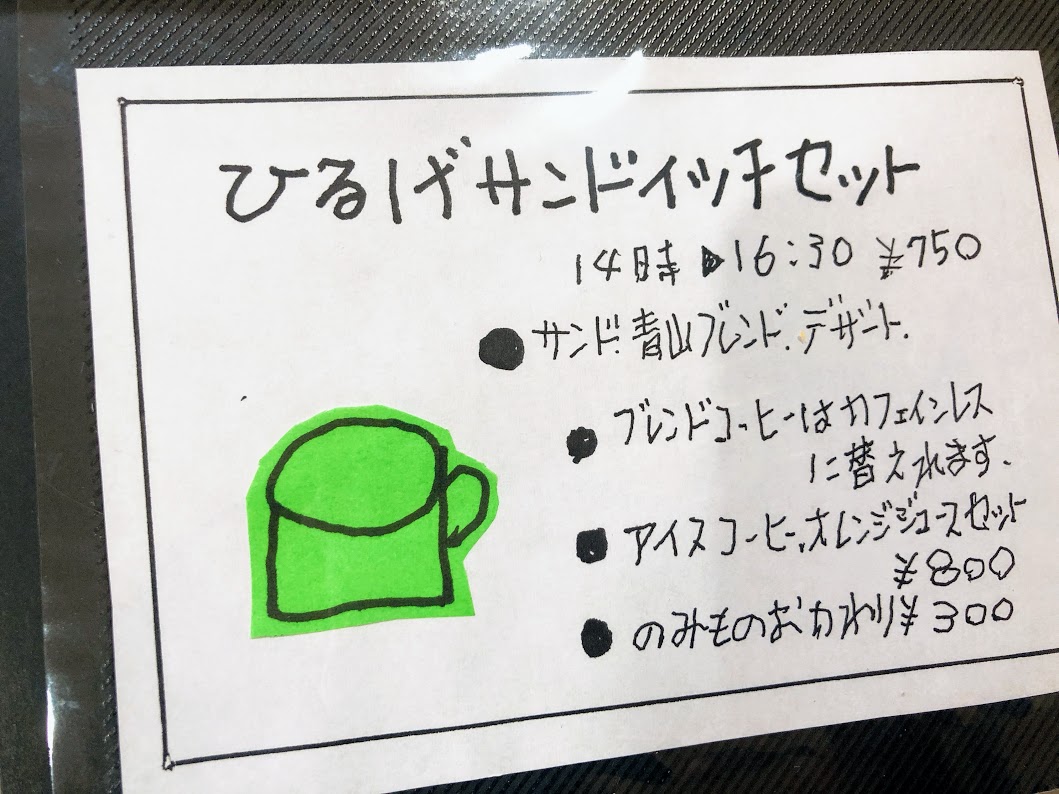 ひるげサンドイッチセット
14時▶16:30 ¥750
●サンド.青山ブレンド.デザート.
●ブレンドコーヒーはカフェインレス
に替えれます.
●アイスコーヒー.オレンジジュースセット
¥800
●のみものおかわり¥300